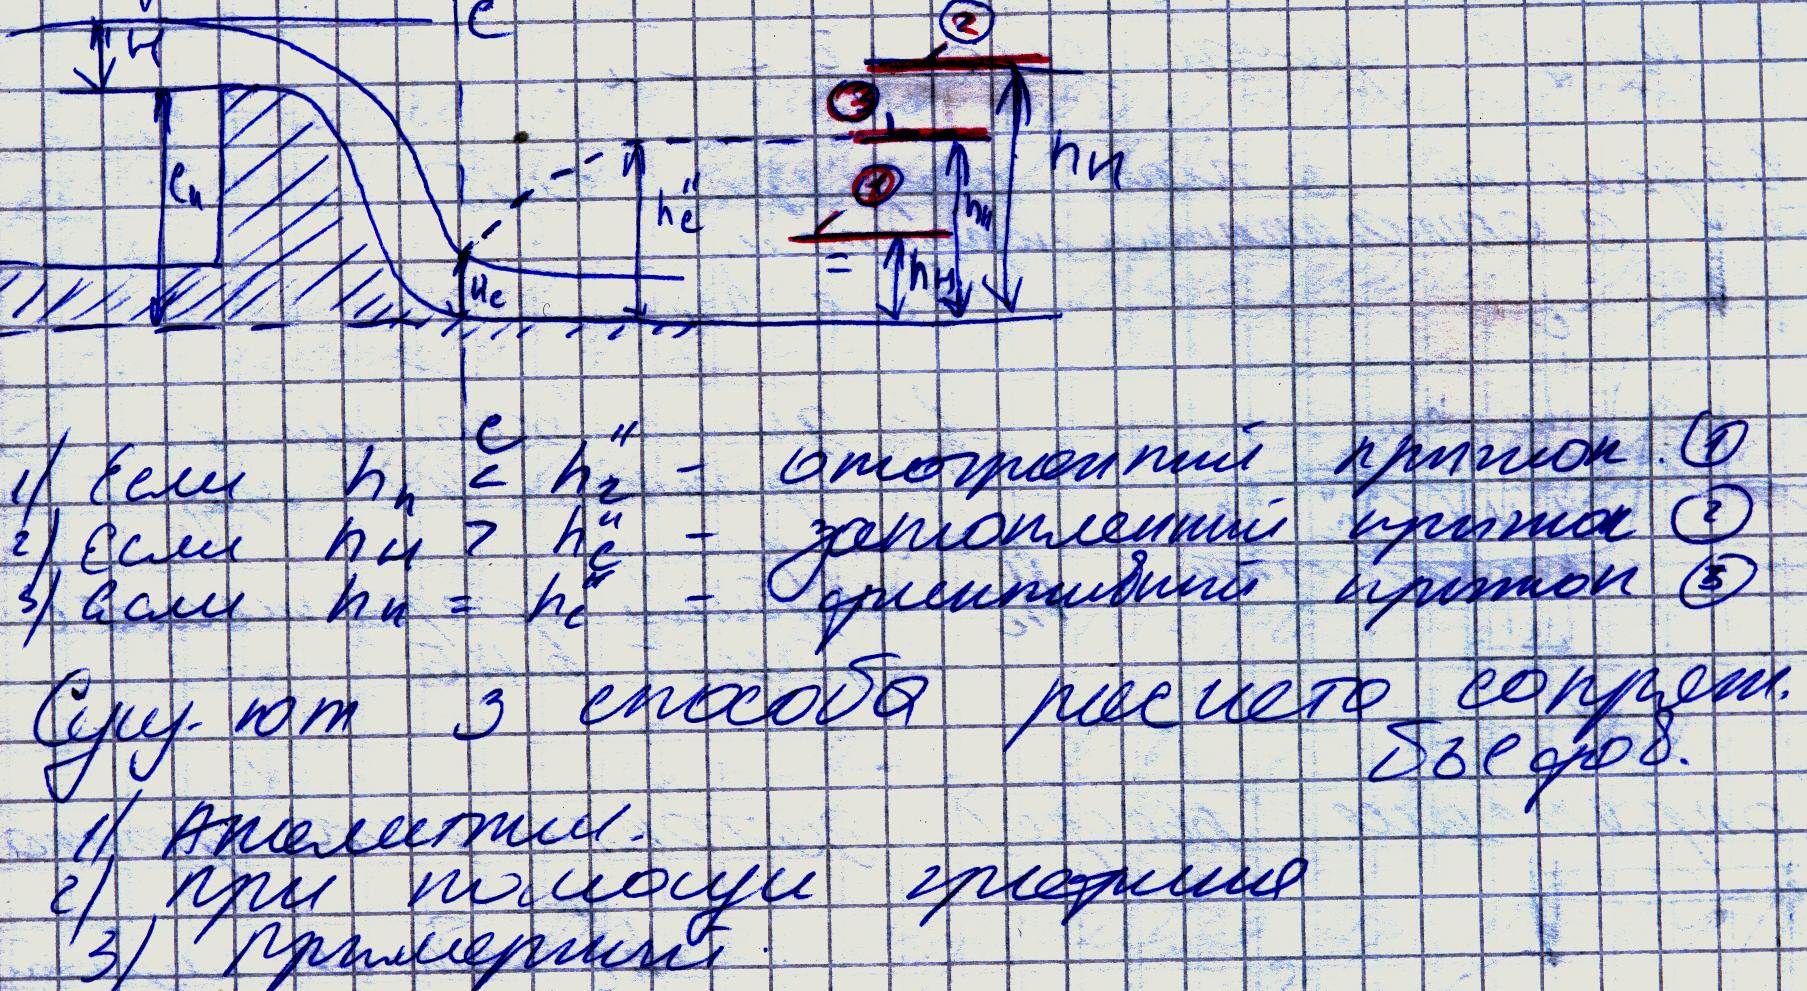 C
②
H
③
hн
eн
h"c
①
hн
hн
hc
C
1) Если hн < h"г - отогнатий прыжок. ①
2) Если hн > h"c - затопленний прыжок ②
3) Если hн = h"c - прыжок ③
Сущ-ют 3 способа расчета сопряж.
бъефов.
1) Аналитич.
2) При помощи графика
3) Примерний.